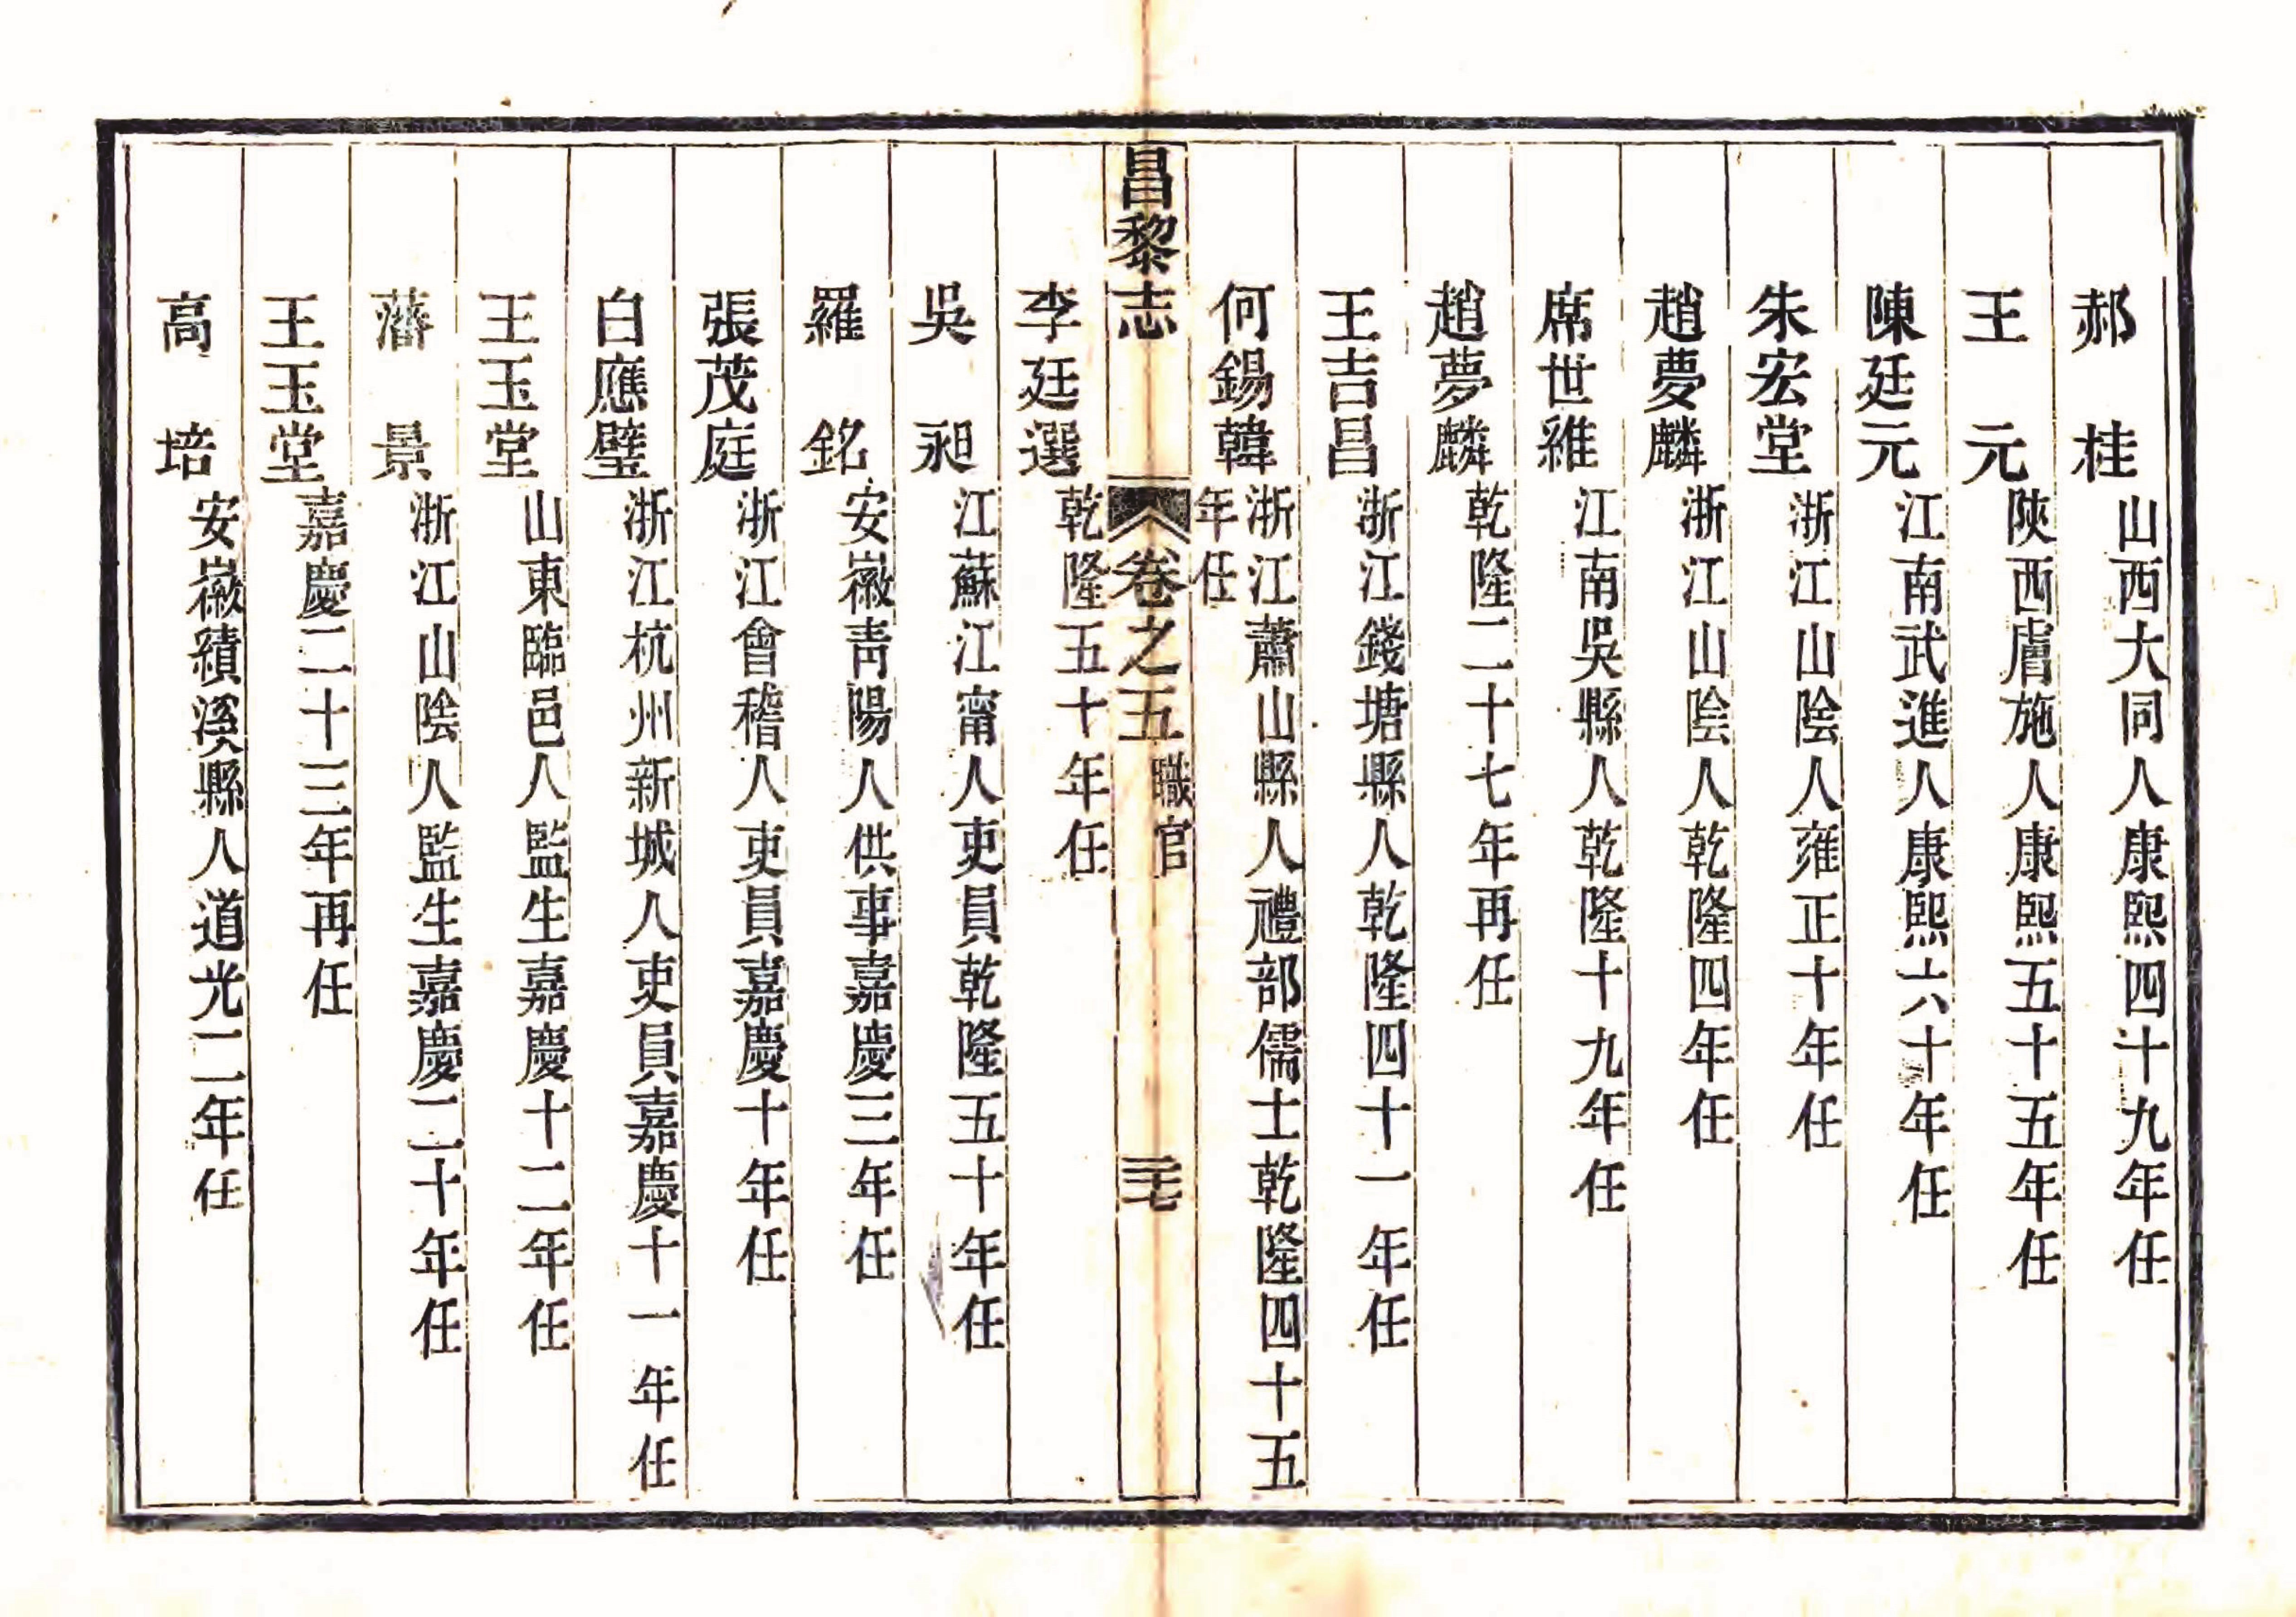 郝　桂山西大同人康熙四十九年任
王　元陝西膚施人康熙五十五年任
陳廷元江南武進人康熙六十年任
朱宏堂浙江山陰人雍正十年任
趙夢麟浙江山陰人乾隆四年任
席世維江南吳縣人乾隆十九年任
趙夢麟乾隆二十七年再任
王吉昌浙江錢塘縣人乾隆四十一年任
何錫韓浙江蕭山縣人禮部儒士乾隆四十五
年任
昌黎志　卷之五　職官　三七
李廷選乾隆五十年任
吳　昶江蘇江甯人吏員乾隆五十年任
羅　銘安徽青陽人供事嘉慶三年任
張茂庭浙江會稽人吏員嘉慶十年任
白應璧浙江杭州新城人吏員嘉慶十一年任
王玉堂山東臨邑人監生嘉慶十二年任
藩　景浙江山陰人監生嘉慶二十年任
王玉堂嘉慶二十三年再任
高　培安徽績溪縣人道光二年任